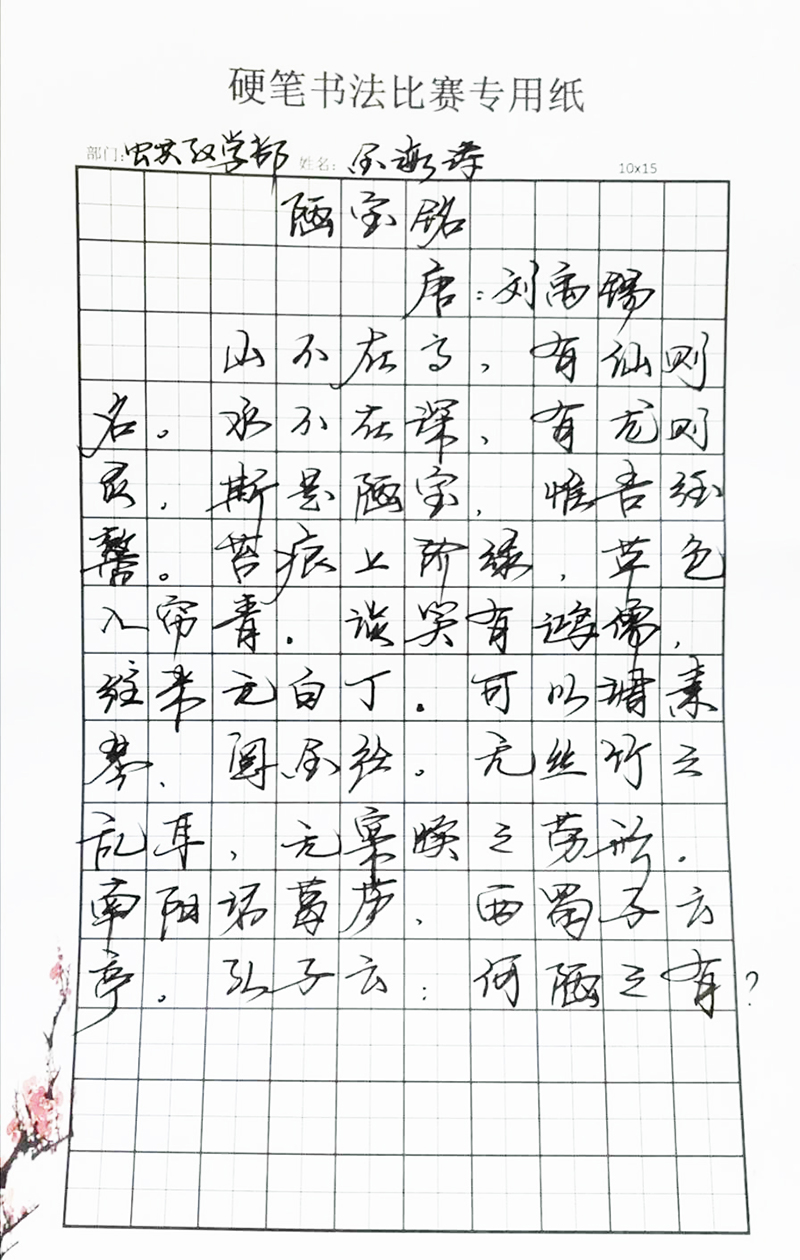 硬笔书法比赛专用纸
部门:公共教学部 姓名: 10x15
陋室铭
唐:刘禹锡
山不在高,有仙则
名。水不在深,有龙则
灵,斯是陋室,惟吾德
馨。苔痕上阶绿,草色
入帘青。谈笑有鸿儒,
往来无白丁。可以调素
琴、阅金经。无丝竹之
乱耳,无案牍之劳形。
南阳诸葛庐、西蜀子云
亭。孔子云:何陋之有?